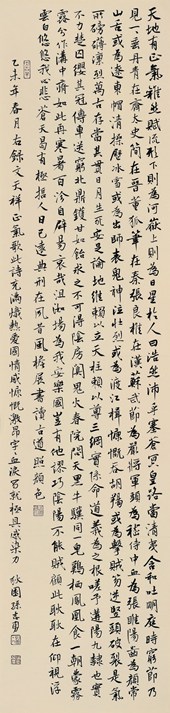 天地有正氣雜然賦流形下則為河嶽上則為日星於人曰浩然沛乎塞蒼冥皇路當清夷含和吐明庭時窮節乃
見一一垂丹青在齊太史簡在晉董狐筆在秦張良椎在漢蘇武節為嚴將軍頭為嵇侍中血為張睢陽齒為顏常
山舌或為遼東帽清操厲冰雪或為出師表鬼神泣壯烈或為渡江楫慷慨吞胡羯或為擊賊笏逆豎頭破裂是氣
所磅礴凜烈萬古存當其貫日月生死安足論地維賴以立天柱賴以尊三綱實係命道義為之根嗟予遘陽九隸也實
不力楚囚纓其冠傳車送窮北鼎鑊甘如飴求之不可得陰房闃鬼火春院閟天黑牛驥同一皂雞棲鳳凰食一朝蒙霧
露分作溝中瘠如此再寒暑百沴自辟易哀哉沮洳場為我安樂國豈有他謬巧陰陽不能賊顧此耿耿在仰視浮
雲白悠悠我心悲蒼天曷有極哲人日已遠典刑在夙昔風檐展書讀古道照顏色
乙未年春月右錄文天祥正氣歌此詩充滿熾熱愛國情感慷慨激昂字字血淚寫就極具感染力 孫志勇